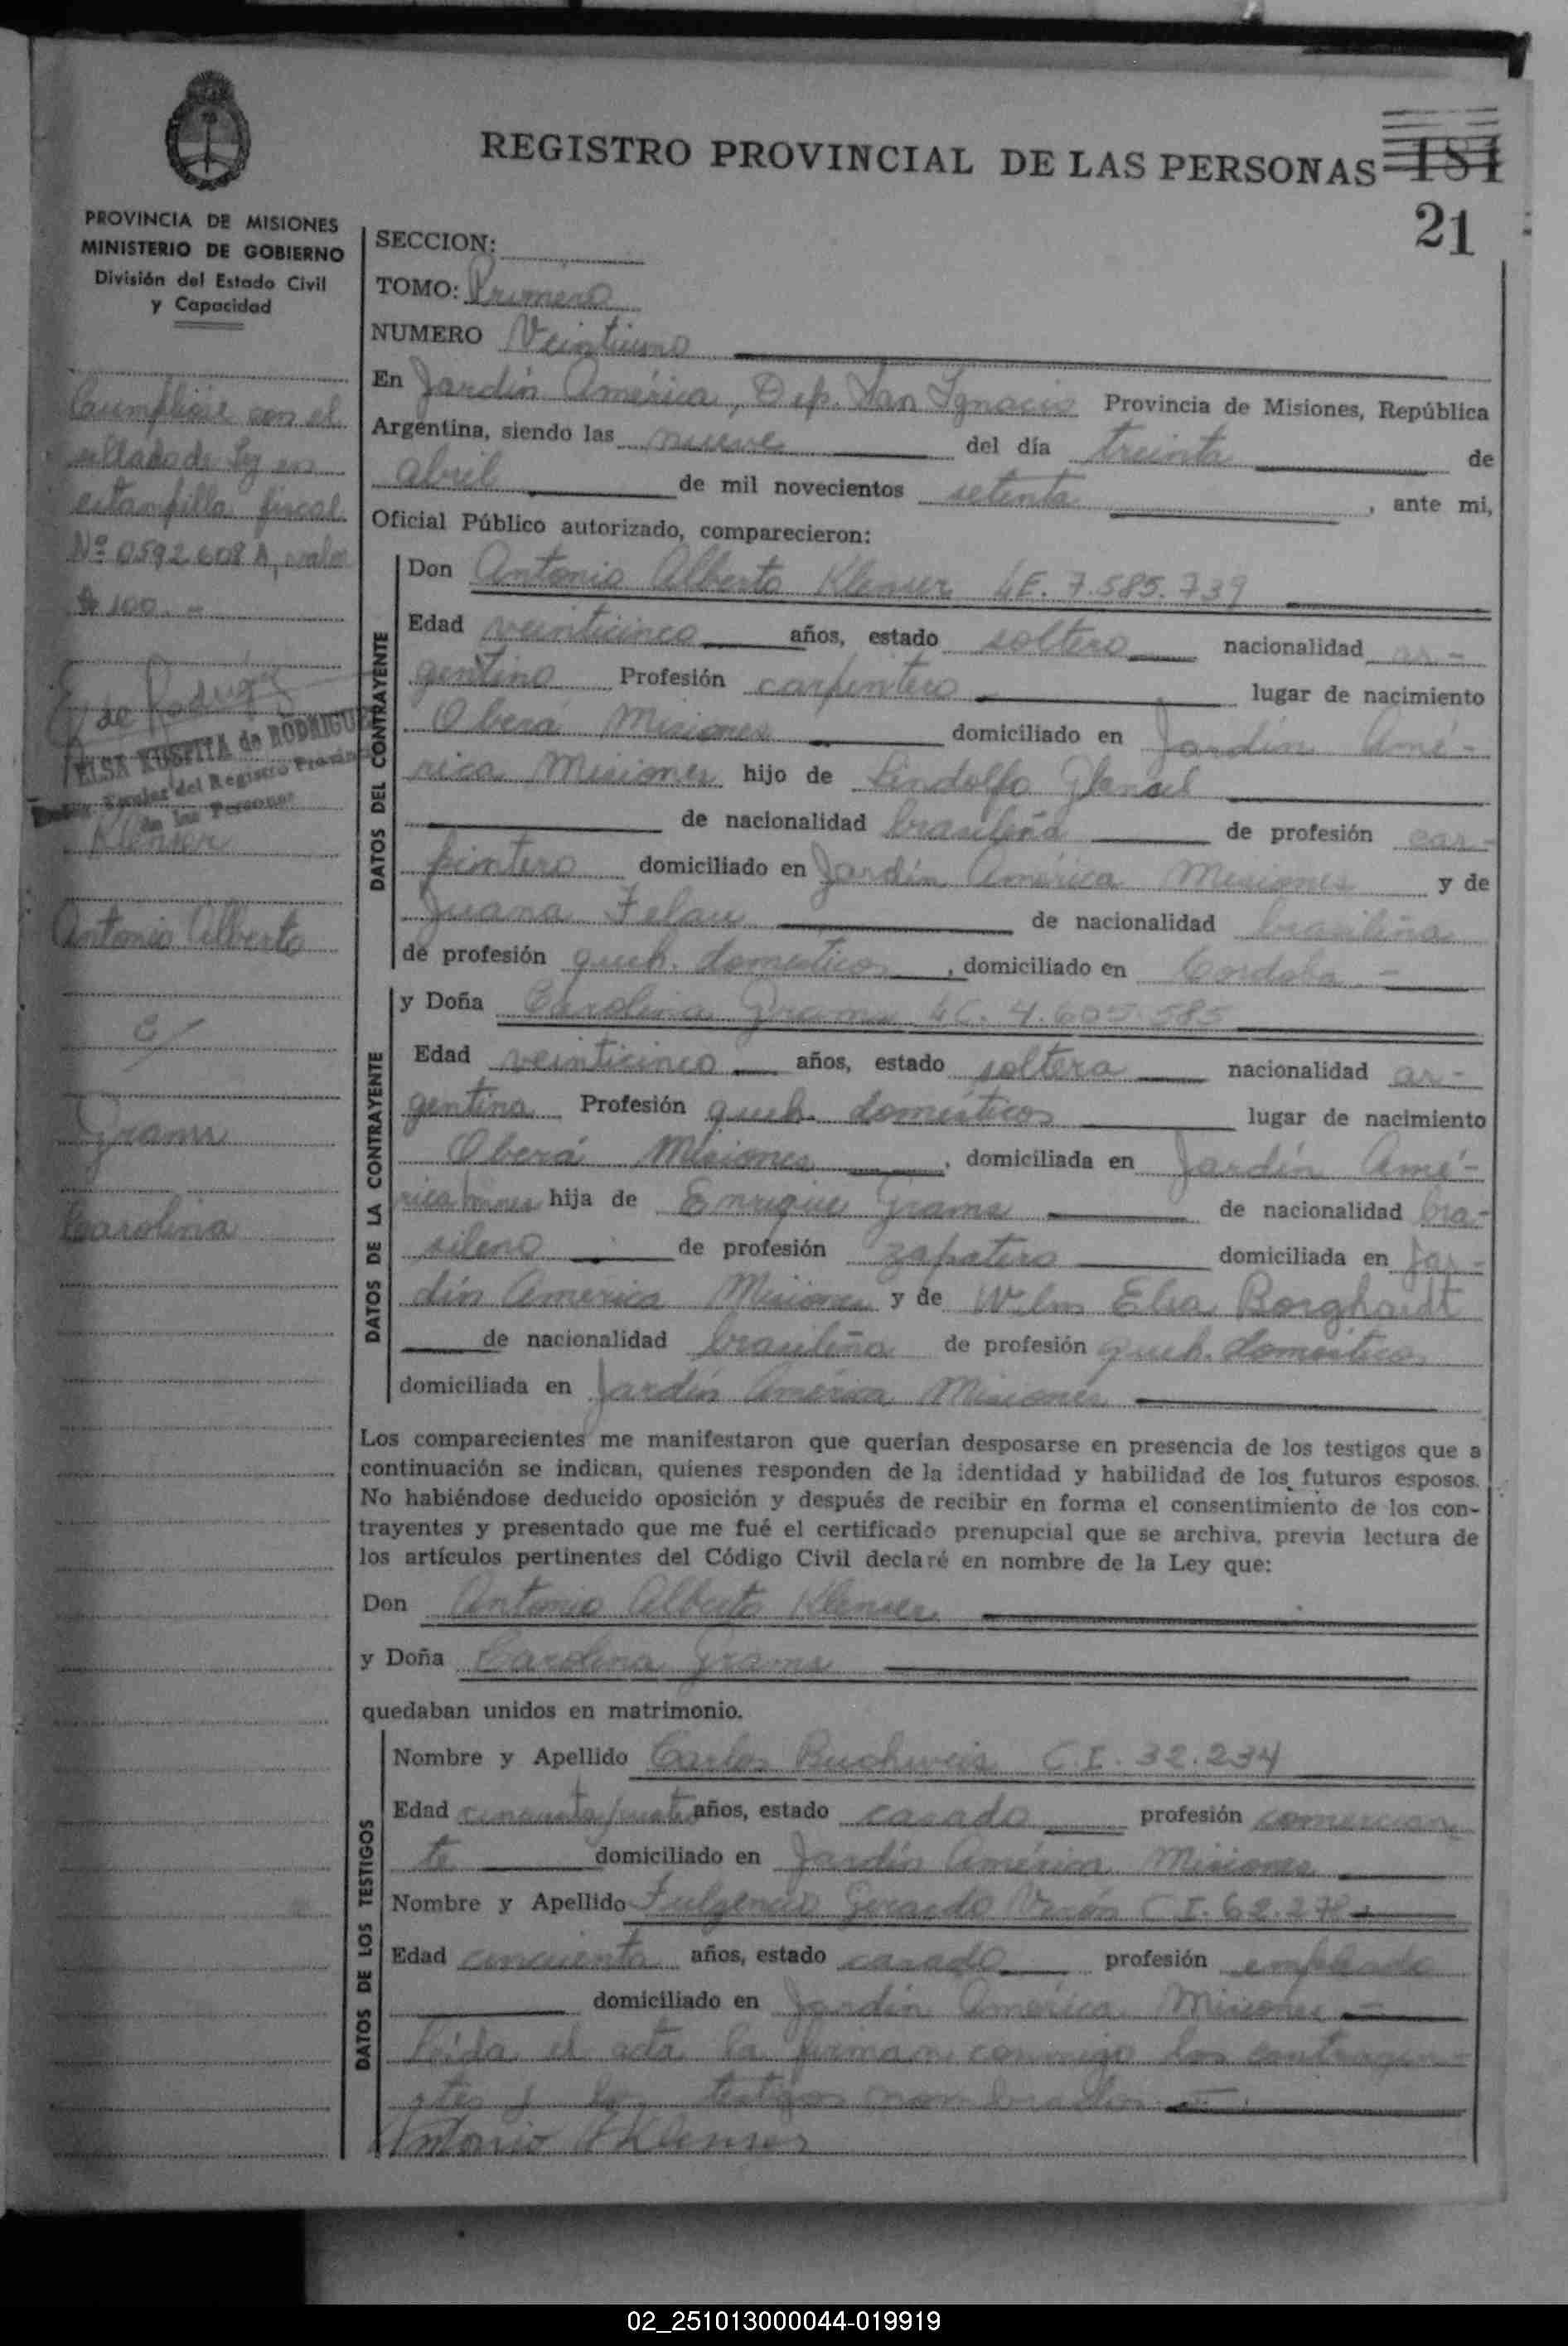 REGISTRO PROVINCIAL DE LAS PERSONAS 181
21
PROVINCIA DE MISIONES
MINISTERIO DE GOBIERNO
División del Estado Civil
y Capacidad
Cumplióse con el
sellado de Ley en
estampilla fiscal
Nº 0592608 A, valor
$ 100.-
E de Rodriguez
ELSA KUSPITA de RODRIGUEZ
del Registro Provin
de las Personas
Klenser
Antonio Alberto
c/
Grams
Carolina
SECCION:
TOMO: Primero
NUMERO Veintiuno
En Jardín América, Dep. San Ignacio Provincia de Misiones, República
Argentina, siendo las nueve del día treinta de
abril de mil novecientos setenta, ante mi,
Oficial Público autorizado, comparecieron:
DATOS DEL CONTRAYENTE
Don Antonio Alberto Klenser LE. 7.585.739
Edad veinticinco años, estado soltero nacionalidad ar-
gentino Profesión carpintero lugar de nacimiento
Oberá Misiones domiciliado en Jardín Amé-
rica Misiones hijo de Lindolfo
de nacionalidad brasileña de profesión car-
pintero domiciliado en Jardín América Misiones y de
Juana de nacionalidad brasileña
de profesión queh. domésticos, domiciliado en Cordoba.-
DATOS DE LA CONTRAYENTE
y Doña Carolina Grams LC. 4.605.585
Edad veinticinco años, estado soltera nacionalidad ar-
gentina Profesión queh. domésticos lugar de nacimiento
Oberá Misiones, domiciliada en Jardín Amé-
rica hija de Enrique Grams de nacionalidad bra-
sileno de profesión zapatero domiciliada en Jar-
dín América Misiones y de Elsa Borghardt
de nacionalidad brasileña de profesión queh. domésticos
domiciliada en Jardín América Misiones
Los comparecientes me manifestaron que querían desposarse en presencia de los testigos que a
continuación se indican, quienes responden de la identidad y habilidad de los futuros esposos.
No habiéndose deducido oposición y después de recibir en forma el consentimiento de los con-
trayentes y presentado que me fué el certificado prenupcial que se archiva, previa lectura de
los artículos pertinentes del Código Civil declaré en nombre de la Ley que:
Don Antonio Alberto Klenser
y Doña Carolina Grams
quedaban unidos en matrimonio.
DATOS DE LOS TESTIGOS
Nombre y Apellido Carlos Buchweis C.I. 32.234
Edad cincuenta años, estado casado profesión comercian-
te domiciliado en Jardín América Misiones
Nombre y Apellido Fulgencio Gerardo Verón C.I. 62.278
Edad cincuenta años, estado casado profesión empleado
domiciliado en Jardín América Misiones
Leída el acta la firman conmigo los contrayen-
tes y los testigos nombrados
Antonio A Klenser
02_251013000044-019919